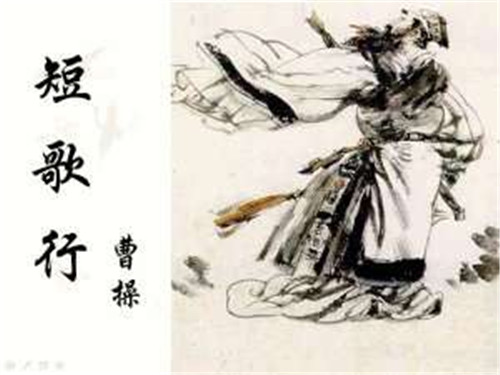 短歌行
曹操